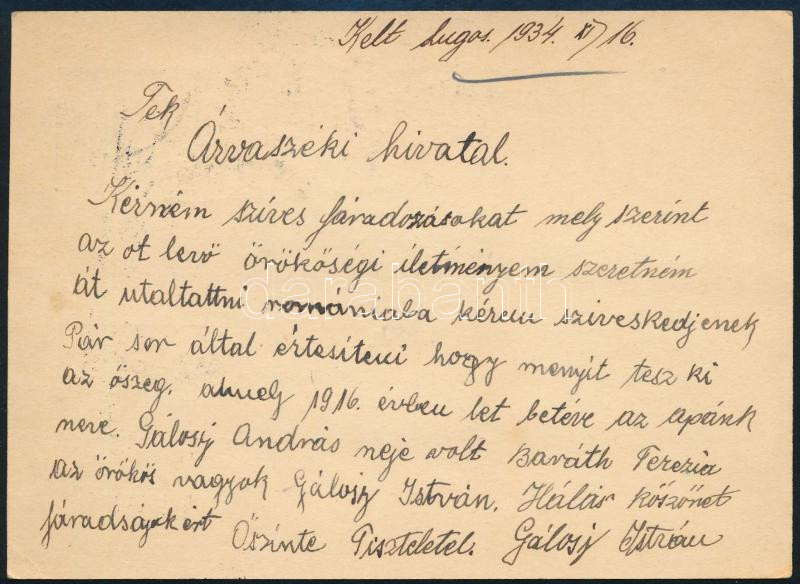 Kelt Lugos. 1934. XI/16.
Tek
Árvaszéki hivatal.
Kérném szíves fáradozásokat mely szerint
az ot levő örökőségi íletményem szeretném
át utaltattni romániaba kérem sziveskedjenek
Pár sor által értesíteni hogy menyit tesz ki
az őszeg. amely 1916. évben let betéve az apánk
neve. Gálosij András neje volt Baráth Terezia
az örökös vagyok Gálosij István. Hálás köszönet
fáradságokért Őszinte Tisztelétel. Gálosij István
darabanth